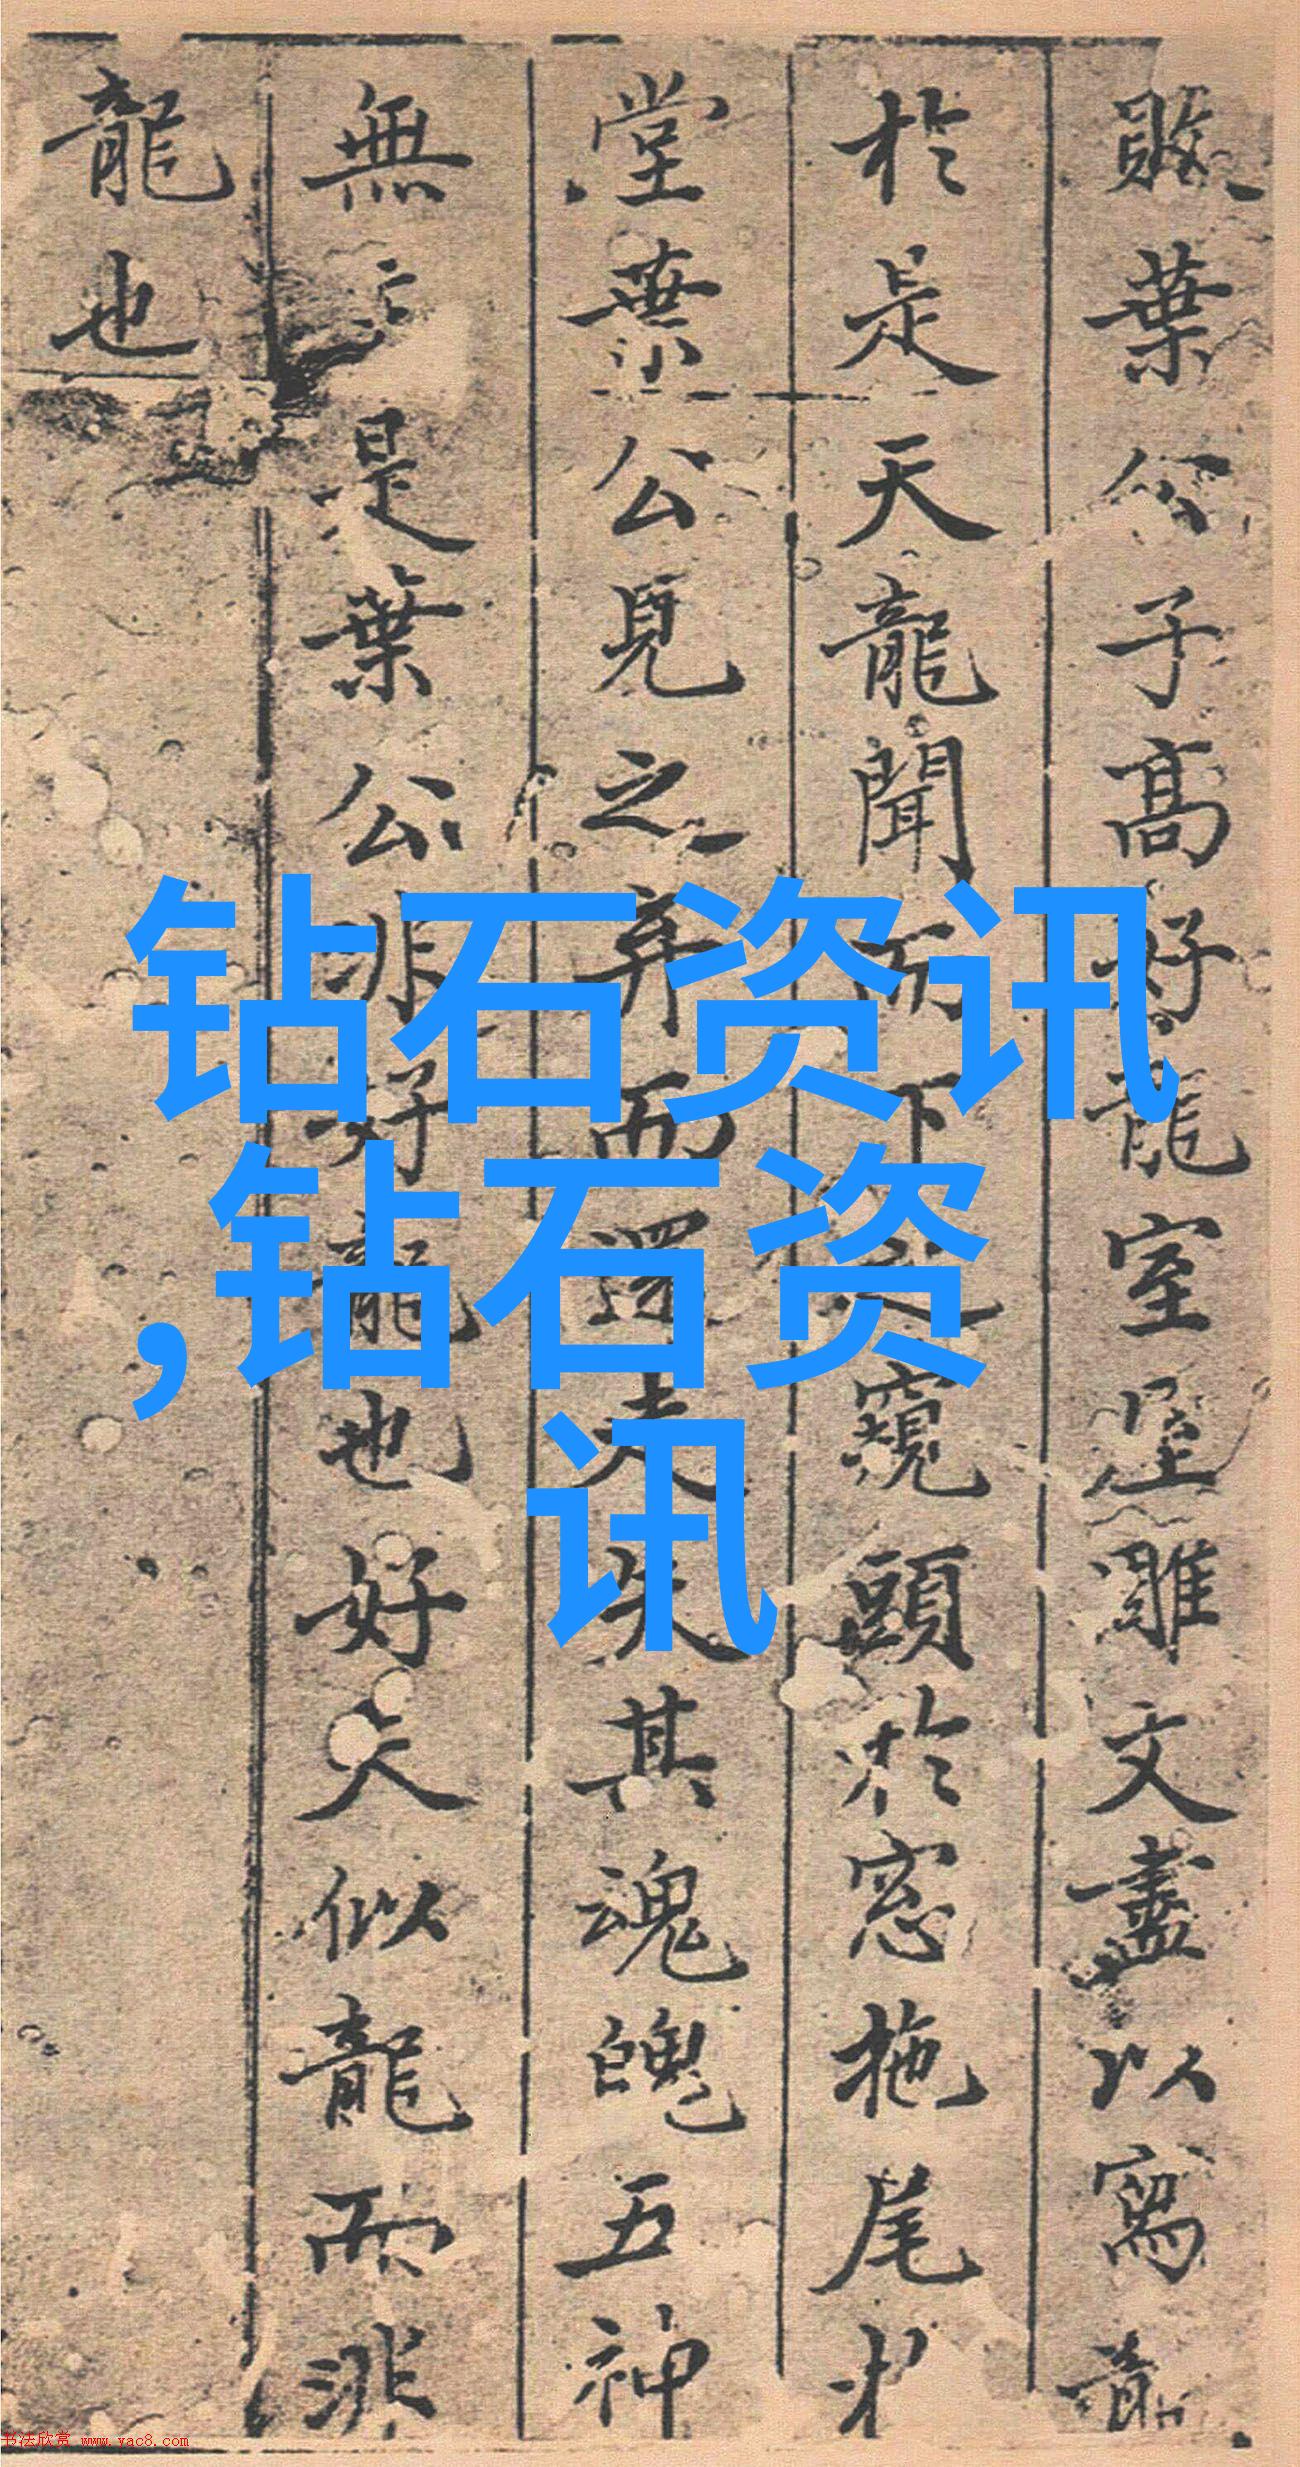 葉公子高好龍室屋雕文盡以寫龍
於是天龍聞而下之窺頭於窓拖尾於
堂葉公見之弃而還走失其魂魄五神
無主是葉公非好龍也好夫似龍而非
龍也
钻石资讯
,钻石资
讯
书法欣赏 www.yac8.com